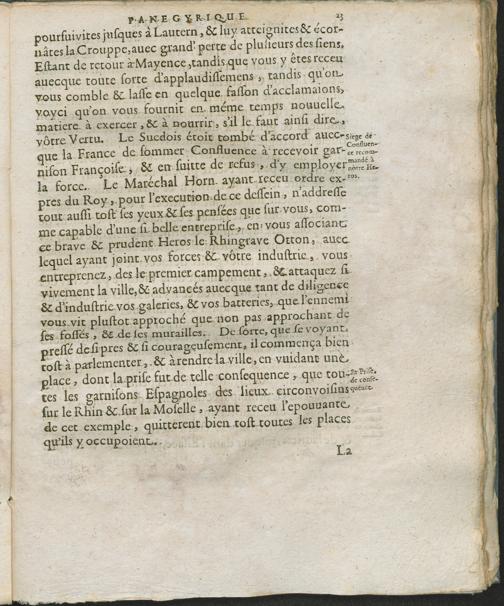 PANEGYRIQUE 23
poursuivites jusques à Lautern, & luy atteignites & écor-
nâtes la Crouppe, avec grand' perte de plusieurs des siens.
Estant de retour à Mayence, tandis que vous y êtes receu
avecque toute sorte d'applaudissemens, tandis qu'on
vous comble & lasse en quelque fasson d'acclamaions,
voyci qu'on vous fournit en méme temps nouuelle
matiere à exercer, & à nourrir, s'il le faut ainsi dire,
vôtre Vertu. Le Suedois étoit tombé d'accord auec-
que la France de sommer Confluence à recevoir gar-
nison Françoise, & en suitte de refus, d'y employer
la force. Le Maréchal Horn ayant receu ordre ex-
pres du Roy, pour l'execution de ce dessein, n'addresse
tout aussi tost ses yeux & ses pensées que sur vous, com-
me capable d'une si belle entreprise, en vous associant
ce brave & prudent Heros le Rhingrave Otton, auec
lequel ayant joint vos forces & vôtre industrie, vous
entreprenez, des le premier campement, & attaquez si
vivement la ville, & advancés auecque tant de diligence
& d'industrie vos galeries, & vos batteries, que l'ennemi
vous vit plustot approché que non pas approchant de
ses fossés, & de ses murailles. De sorte, que se voyant
pressé de si pres & si courageusement, il commença bien
tost à parlementer, & à rendre la ville, en vuidant une
place, dont la prise fut de telle consequence, que tou-
tes les garnisons Espagnoles des lieux circonvoisins
sur le Rhin & sur la Moselle, ayant receu l'epouuante
de cet exemple, quitterent bien tost toutes les places
qu'ils y occupoient.
La
Siege de
Confluen-
ce recom-
mandé à
nôtre He-
ros.
Sa Prise,
de conse-
quence.